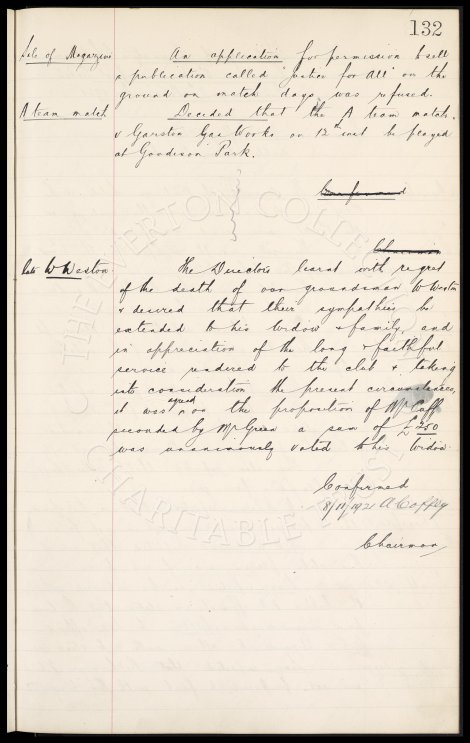 132
Sale of Magazine An application for permission to sell
a publication called "Justice for All" on the
ground on match days, was refused.
A team match Decided that the A team match
v Garston Gas Works on 12th inst be played
at Goodison Park.
Confirmed
Chairman
late W Weston The Directors learnt with regret
of the death of our groundsman W Weston
& desired that their sympathies be
extended to his widow & family, and
in appreciation of the long & faithful
service rendered to the club & taking
into consideration the present circumstances,
it was agreed on the proposition of Mr Cuff
seconded by Mr Green a sum of £250
was unanimously voted to his widow
Confirmed
8/11/1921 A Coffey
Chairman
THE EVERTON COLLECTION
CHARITABLE TRUST